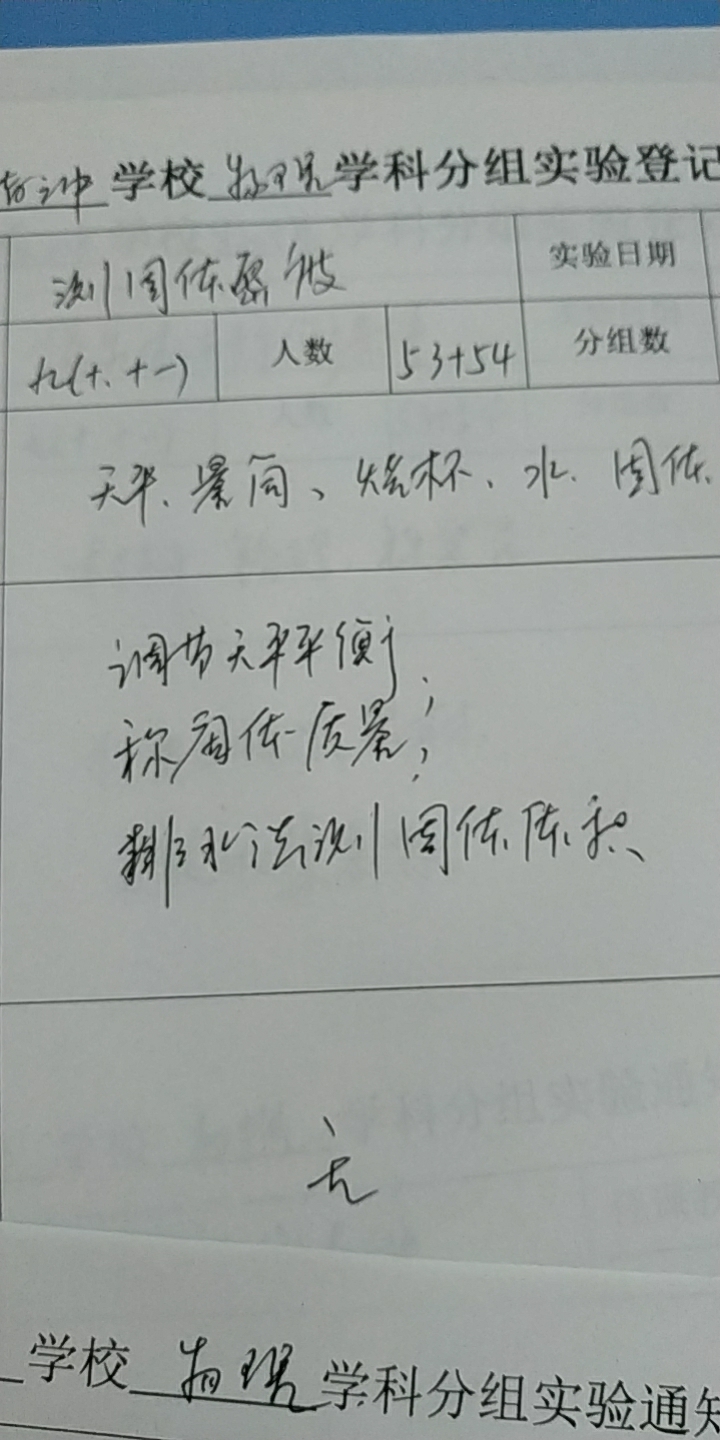 学校物理学科分组实验登记
测固体密度 实验日期
九(十、十一) 人数 53+54 分组数
天平、量筒、烧杯、水、固体、
调节天平平衡;
称固体质量;
排水法测固体体积、
无
学校 物理 学科分组实验通知